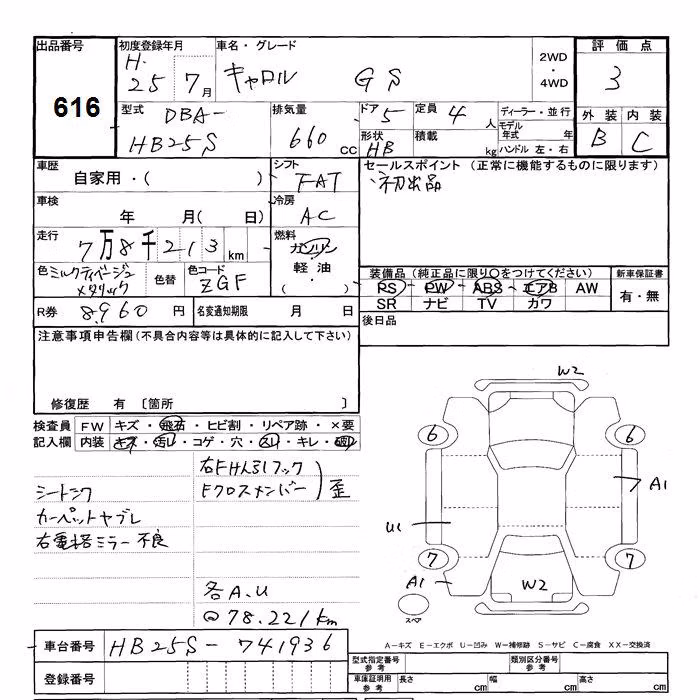 出品番号
616
初度登録年月
H.
25 7月
車名・グレード
キャロル GS
2WD
・
4WD
評価点
3
外装 内装
B C
型式
DBA-
HB25S
排気量
660
CC
ドア 5
定員 4 人
形状 HB
積載 kg
ディーラー・並行
モデル年式 年
ハンドル 左・右
車歴
自家用・( )
シフト
FAT
セールスポイント (正常に機能するものに限ります)
初出品
車検
年 月( 日)
冷房
AC
走行
7万8千213km
燃料
ガソリン
・
軽油
・
( )
色 ミルクティーベージュ
メタリック
色替
色コード
ZGF
装備品 (純正品に限り○をつけてください)
PS・PW・ABS・エアB AW
SR ナビ TV カワ
新車保証書
有・無
R券 8,960 円
名変通知期限 月 日
後日品
注意事項申告欄(不具合内容等は具体的に記入して下さい)
修復歴 有 〔箇所 〕
検査員 FW キズ・飛石・ヒビ割・リペア跡・×要
記入欄 内装 キズ・汚レ・コゲ・穴・スレ・キレ・
右FHんヨ1フック
Fクロスメンバー
歪
シートシワ
カーペットヤブレ
右電格ミラー不良
各A.U
@78.221km
W2
6 6
A1
U1
7 7
A1
W2
スペア
A－キズ E－エクボ U－凹み W－補修跡 S－サビ C－腐食 XX－交換済
車台番号 HB25S - 741936
登録番号
型式指定番号
参考
類別区分番号
参考
車庫証明用
参考
長さ cm
幅 cm
高さ cm